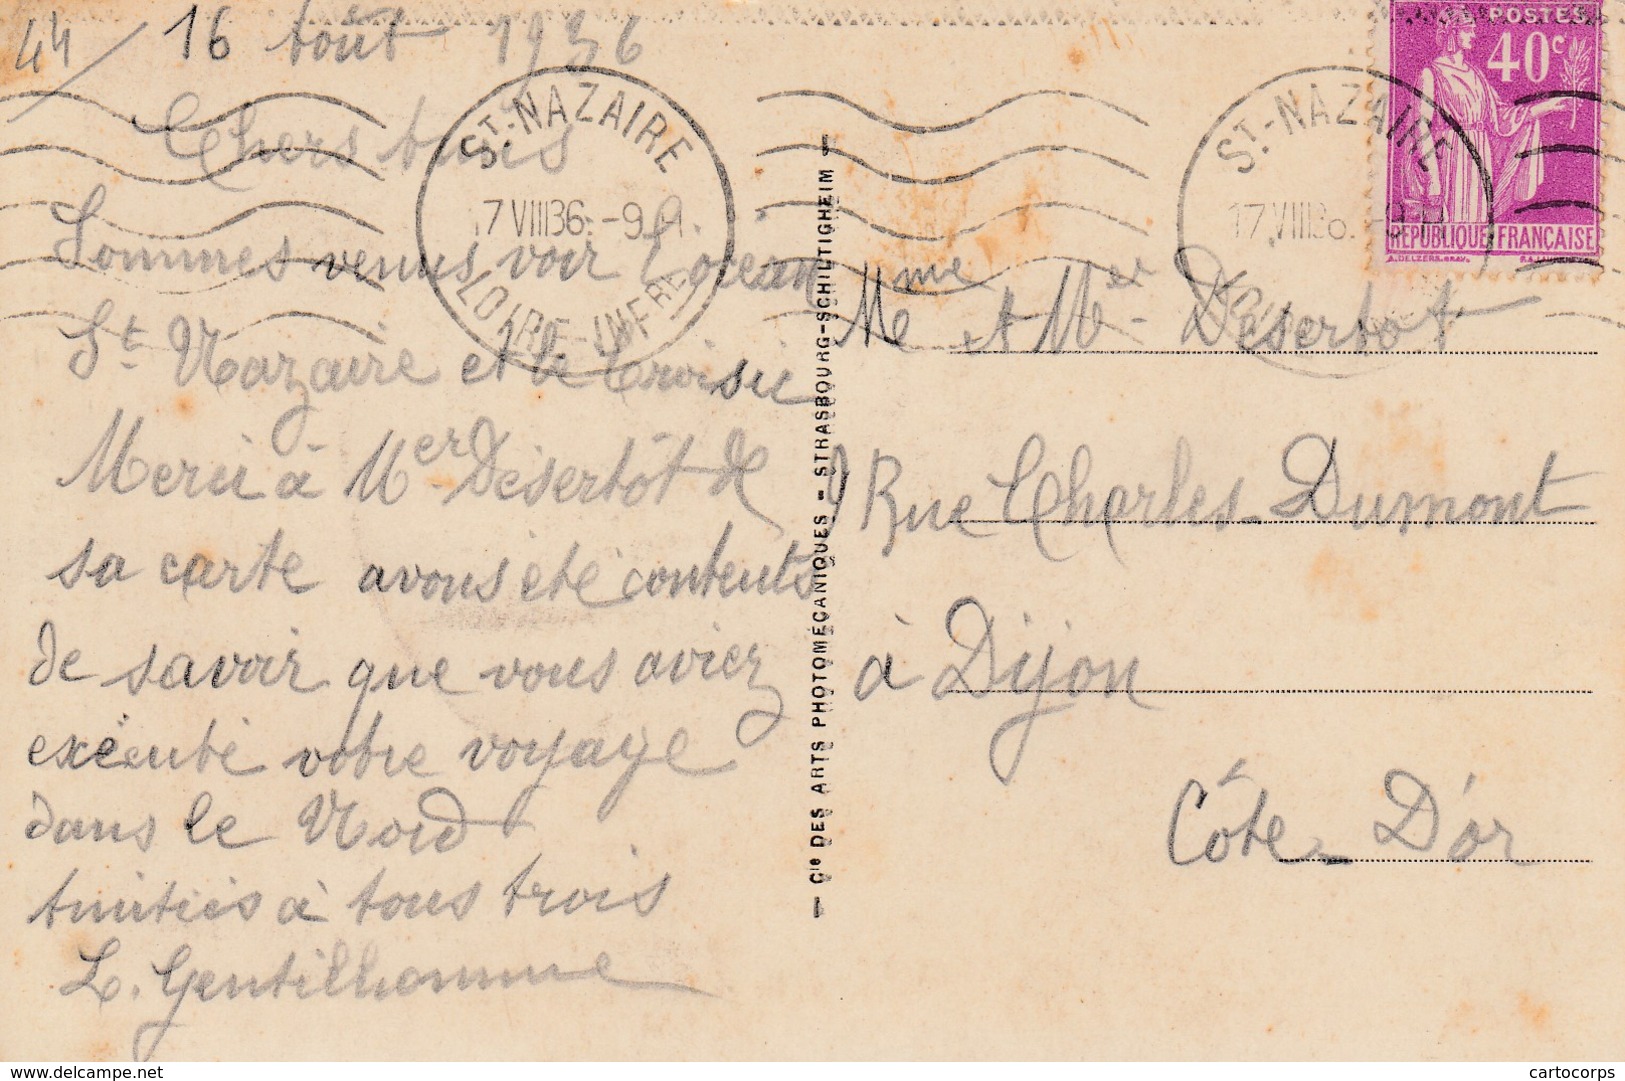 44 / 16 Août 1936
Chers Amis
Sommes venus voir l'océan
St Nazaire et le Croisic
Merci à Mer Désertôt de
sa carte avons été contents
de savoir que vous aviez
exécuté votre voyage
dans le Nord
Amitiés à tous trois
L. Gentilhomme
ST.-NAZAIRE
17 VIII 36.-9
LOIRE-INFRE
— Cie DES ARTS PHOTOMÉCANIQUES — STRASBOURG-SCHILTIGHEIM —
ST.-NAZAIRE
17 VIII 36.
POSTES
40c
RÉPUBLIQUE FRANÇAISE
Mme et Mer Désertot
9 Rue Charles-Dumont
à Dijon
Côte-D'or
www.delcampe.net
cartocorps